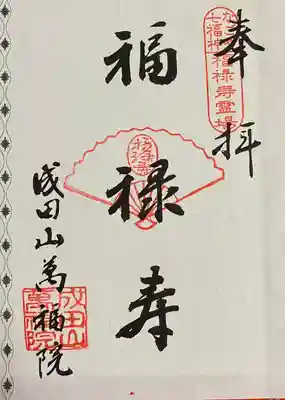 奉拝
七福神
福禄寿霊場
福禄寿
福禄寿
成田山萬福院
成田山
萬福院